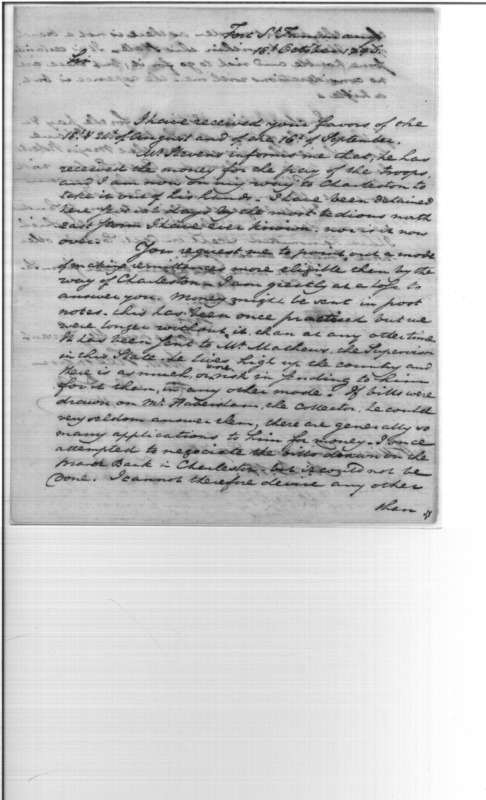 Fort St. Tammany
15th October 1795.
Sir
I have received your favors of the
18th & 21st of August and of the 16th of September.
Mr. Stevens informs me that, he has
received the money for the pay of the troops,
and I am now on my way to Charleston to
take it out of his hands. I have been detained
here several days by the most tedious north
east storm I have ever known, nor is it now
over.
You request me to point out a mode
for making remittances more eligible than by the
way of Charleston. I am greatly at a loss to
answer you. Money might be sent in post
notes. this has been once practised but we
were longer without it than at any other time
It had been sent to Mr. Mathews, the Supervisor
in this State. he lives high up the county and
there is as much, or more risk in sending to him
for it then, in any other mode. If bills were
drawn on Mr. Habersham, the Collector, he could
very seldom answer them, there are generally so
many applications to him for money. I once
attempted to negociate the bills drawn on the
Branch Bank in Charleston, but it could not be
done. I cannot therefore devise any other
than